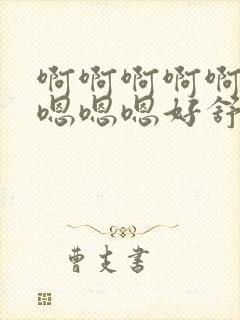 啊啊啊啊啊
嗯嗯嗯好舒
曹支书